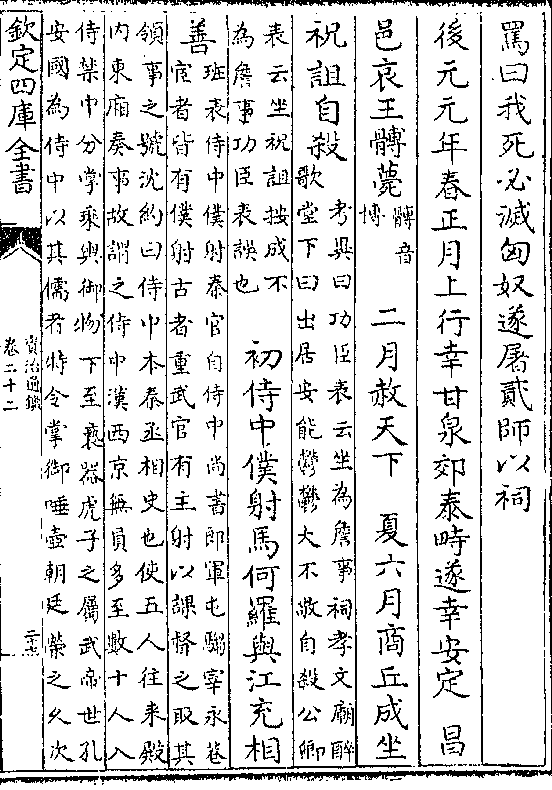 罵曰我死必滅匈奴遂屠貳師以祠
後元元年春正月上行幸甘泉郊泰畤遂幸安定 昌
邑哀王髆薨髆音博 二月赦天下 夏六月商丘成坐
祝詛自殺考異曰功臣表云坐為詹事祠孝文廟醉歌堂下曰出居安能鬱鬱大不敬自殺公卿
表云坐祝詛按成不為詹事功臣表誤也 初侍中僕射馬何羅與江充相
善班表侍中僕射秦官自侍中尚書郎軍屯騶宰永巷宦者皆有僕射古者重武官有主射以課督之取其
領事之號沈約曰侍中本秦丞相史也使五人往来殿内東廂奏事故謂之侍中漢西京無員多至數十人入
侍禁中分掌乘輿御物下至褻器虎子之屬武帝世孔安國為侍中以其儒者特令掌御唾壺朝廷榮之久次
欽定四庫全書
資治通鑑
卷二十二